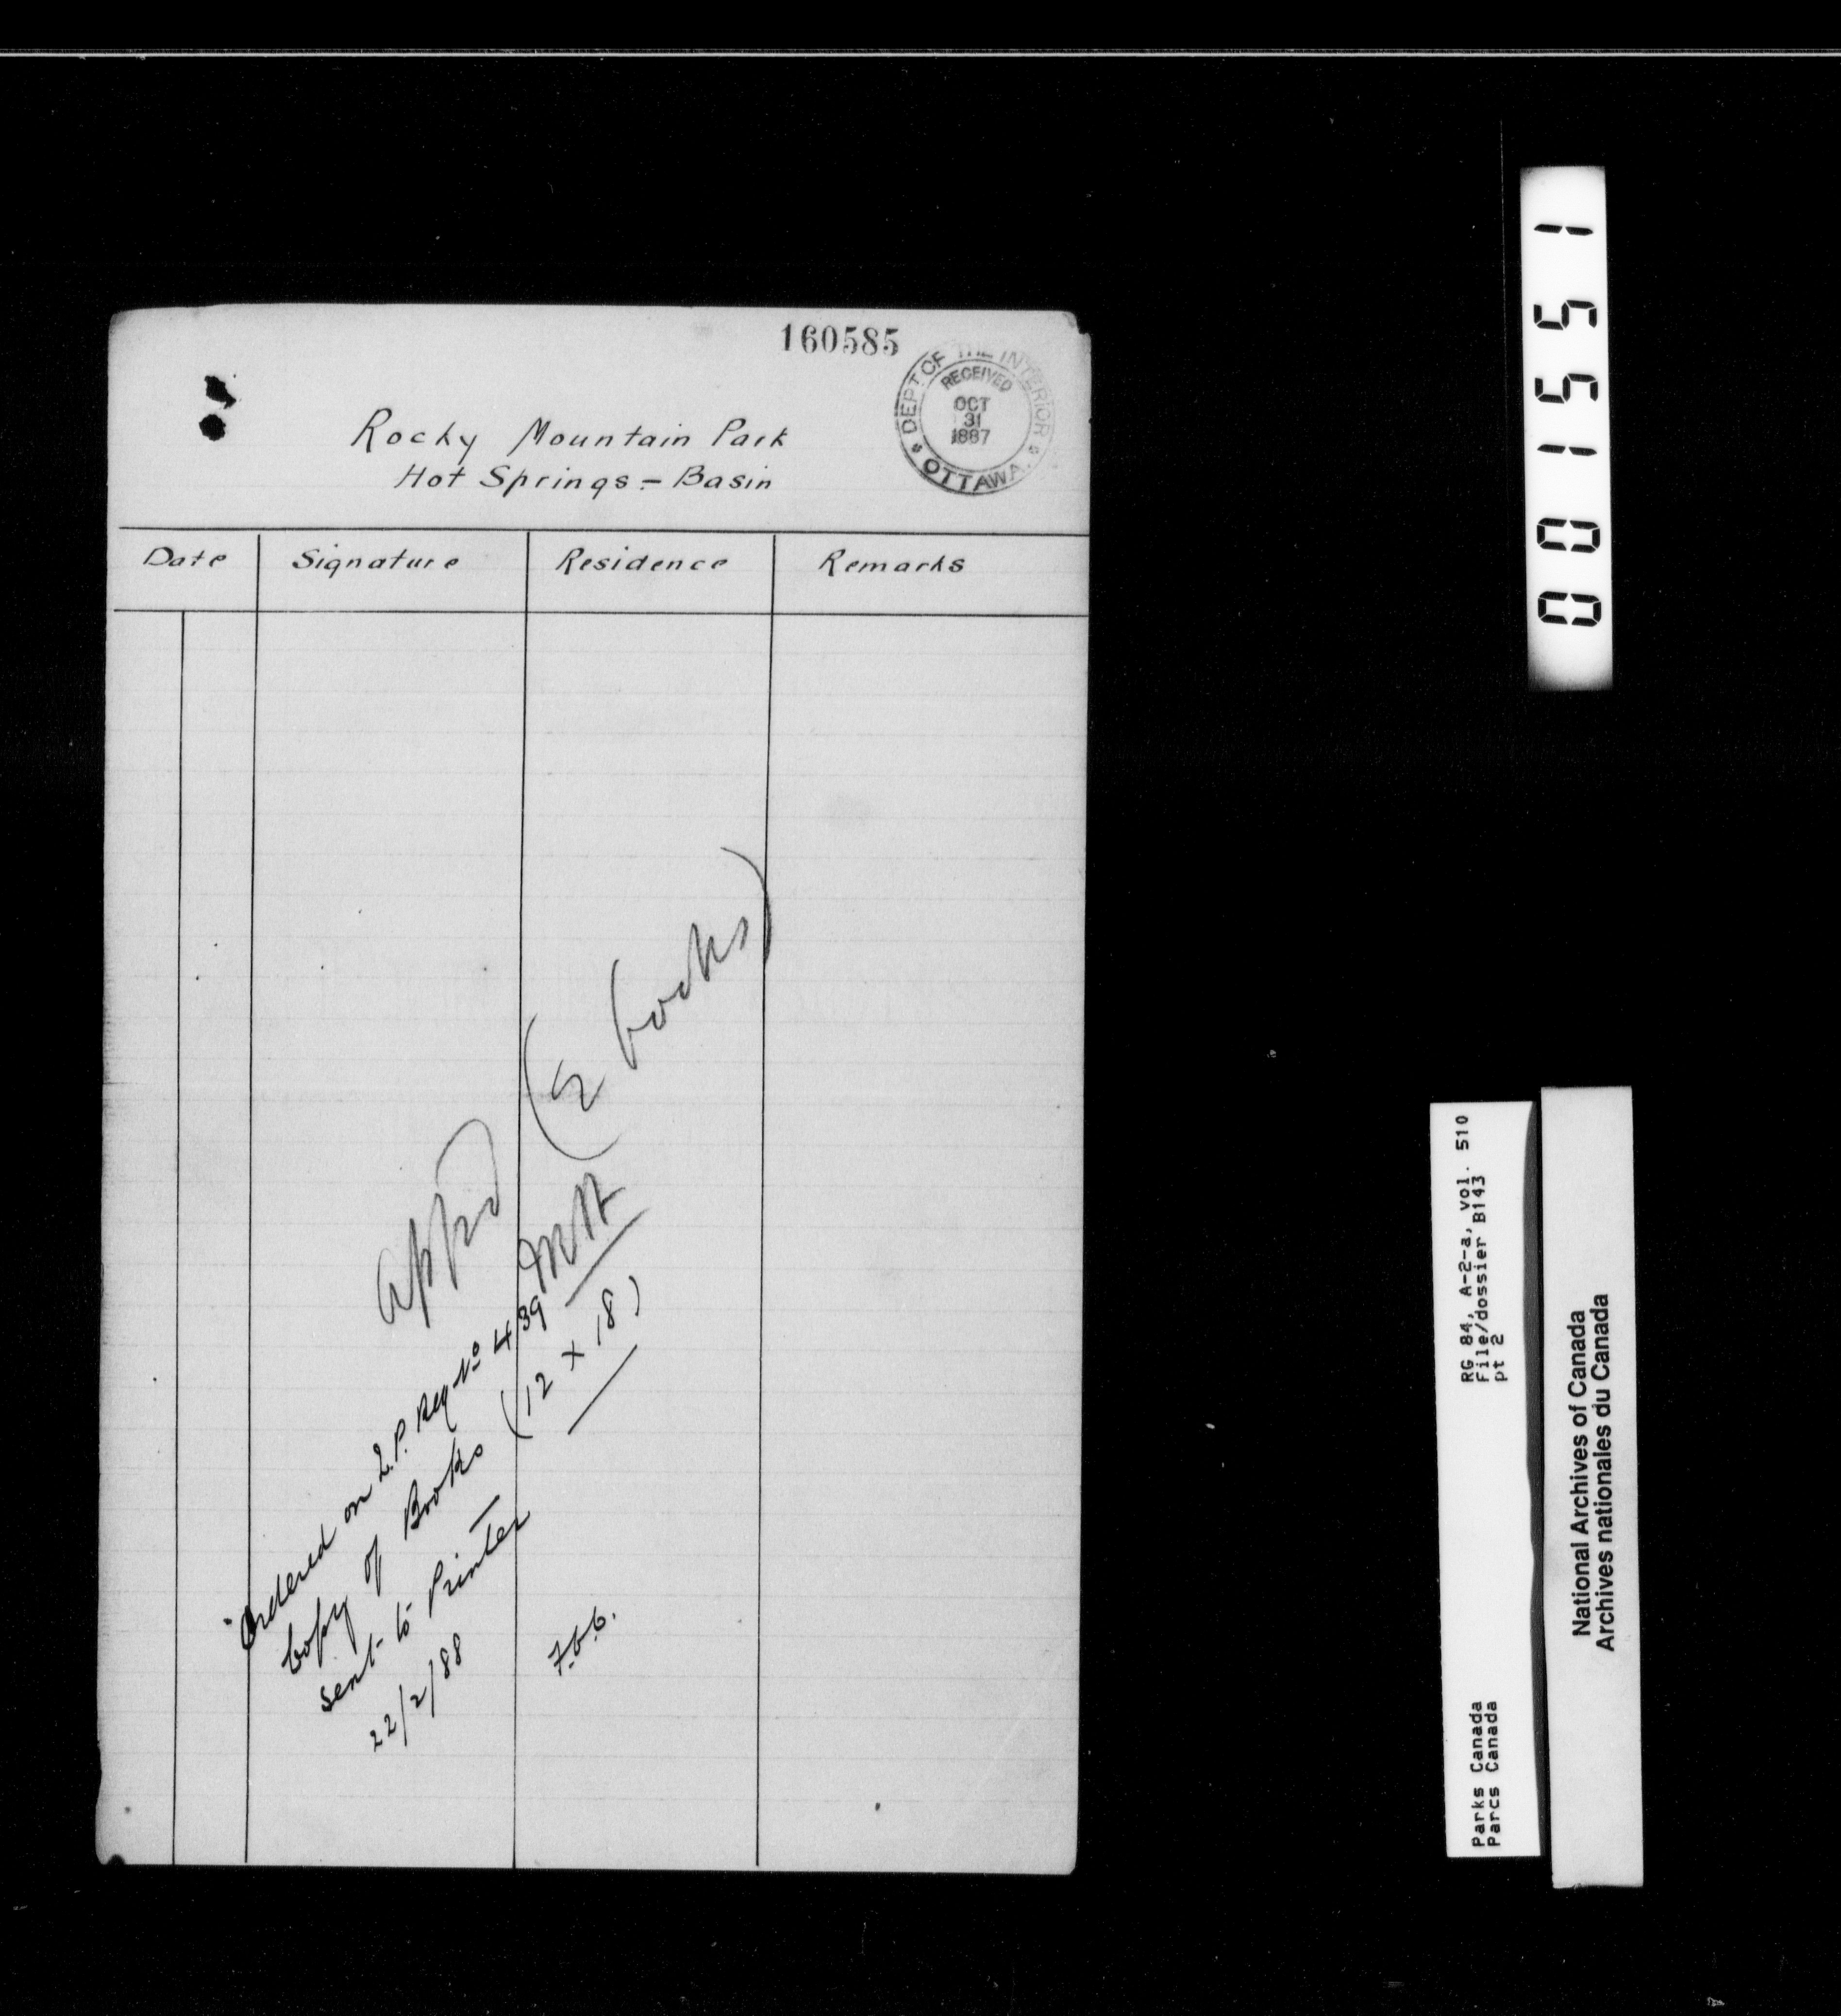 160585
DEPT. OF THE INTERIOR
RECEIVED
OCT
31
1887
OTTAWA.
Rocky Mountain Park
Hot Springs - Basin
Date Signature Residence Remarks
appd (2 books)
Ordered on Q.P. Req No 439
Copy of Books (12 x 18)
sent to Printer
22/2/88
001551
RG 84, A-2-a, vol. 510
File/dossier B143
pt 2
Parks Canada
Parcs Canada
National Archives of Canada
Archives nationales du Canada